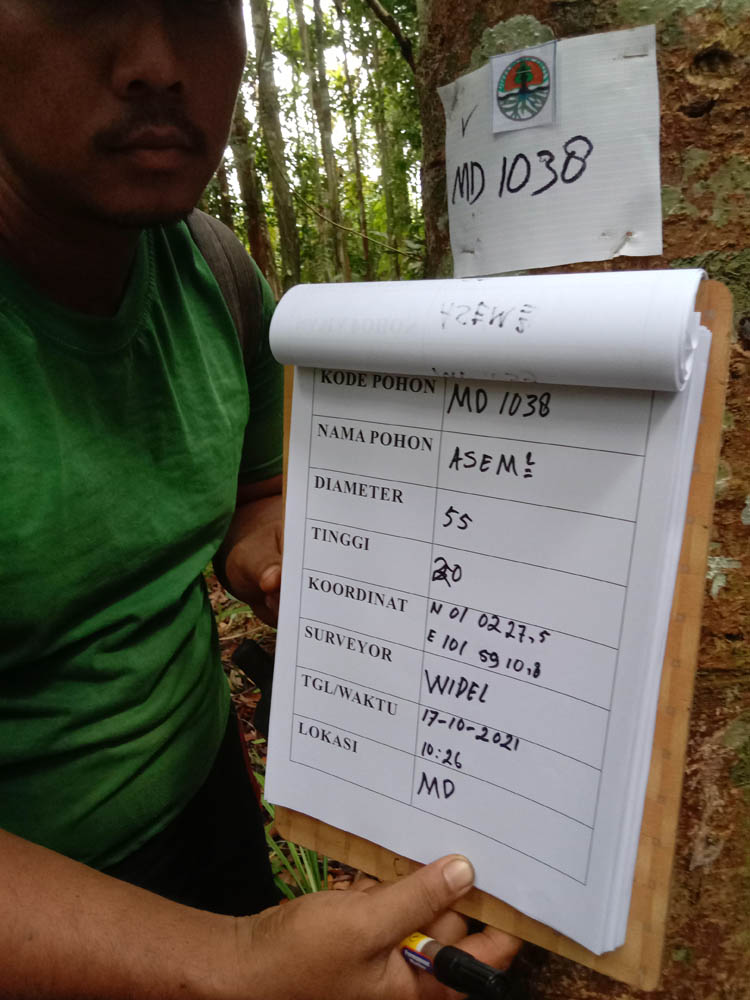 V
MD 1038
ASEM
KODE POHON MD 1038
NAMA POHON ASEM L
DIAMETER 55
TINGGI 20
KOORDINAT N 01 02 27,5
E 101 59 10,8
SURVEYOR WIDEL
TGL/WAKTU 17-10-2021
10:26
LOKASI MD